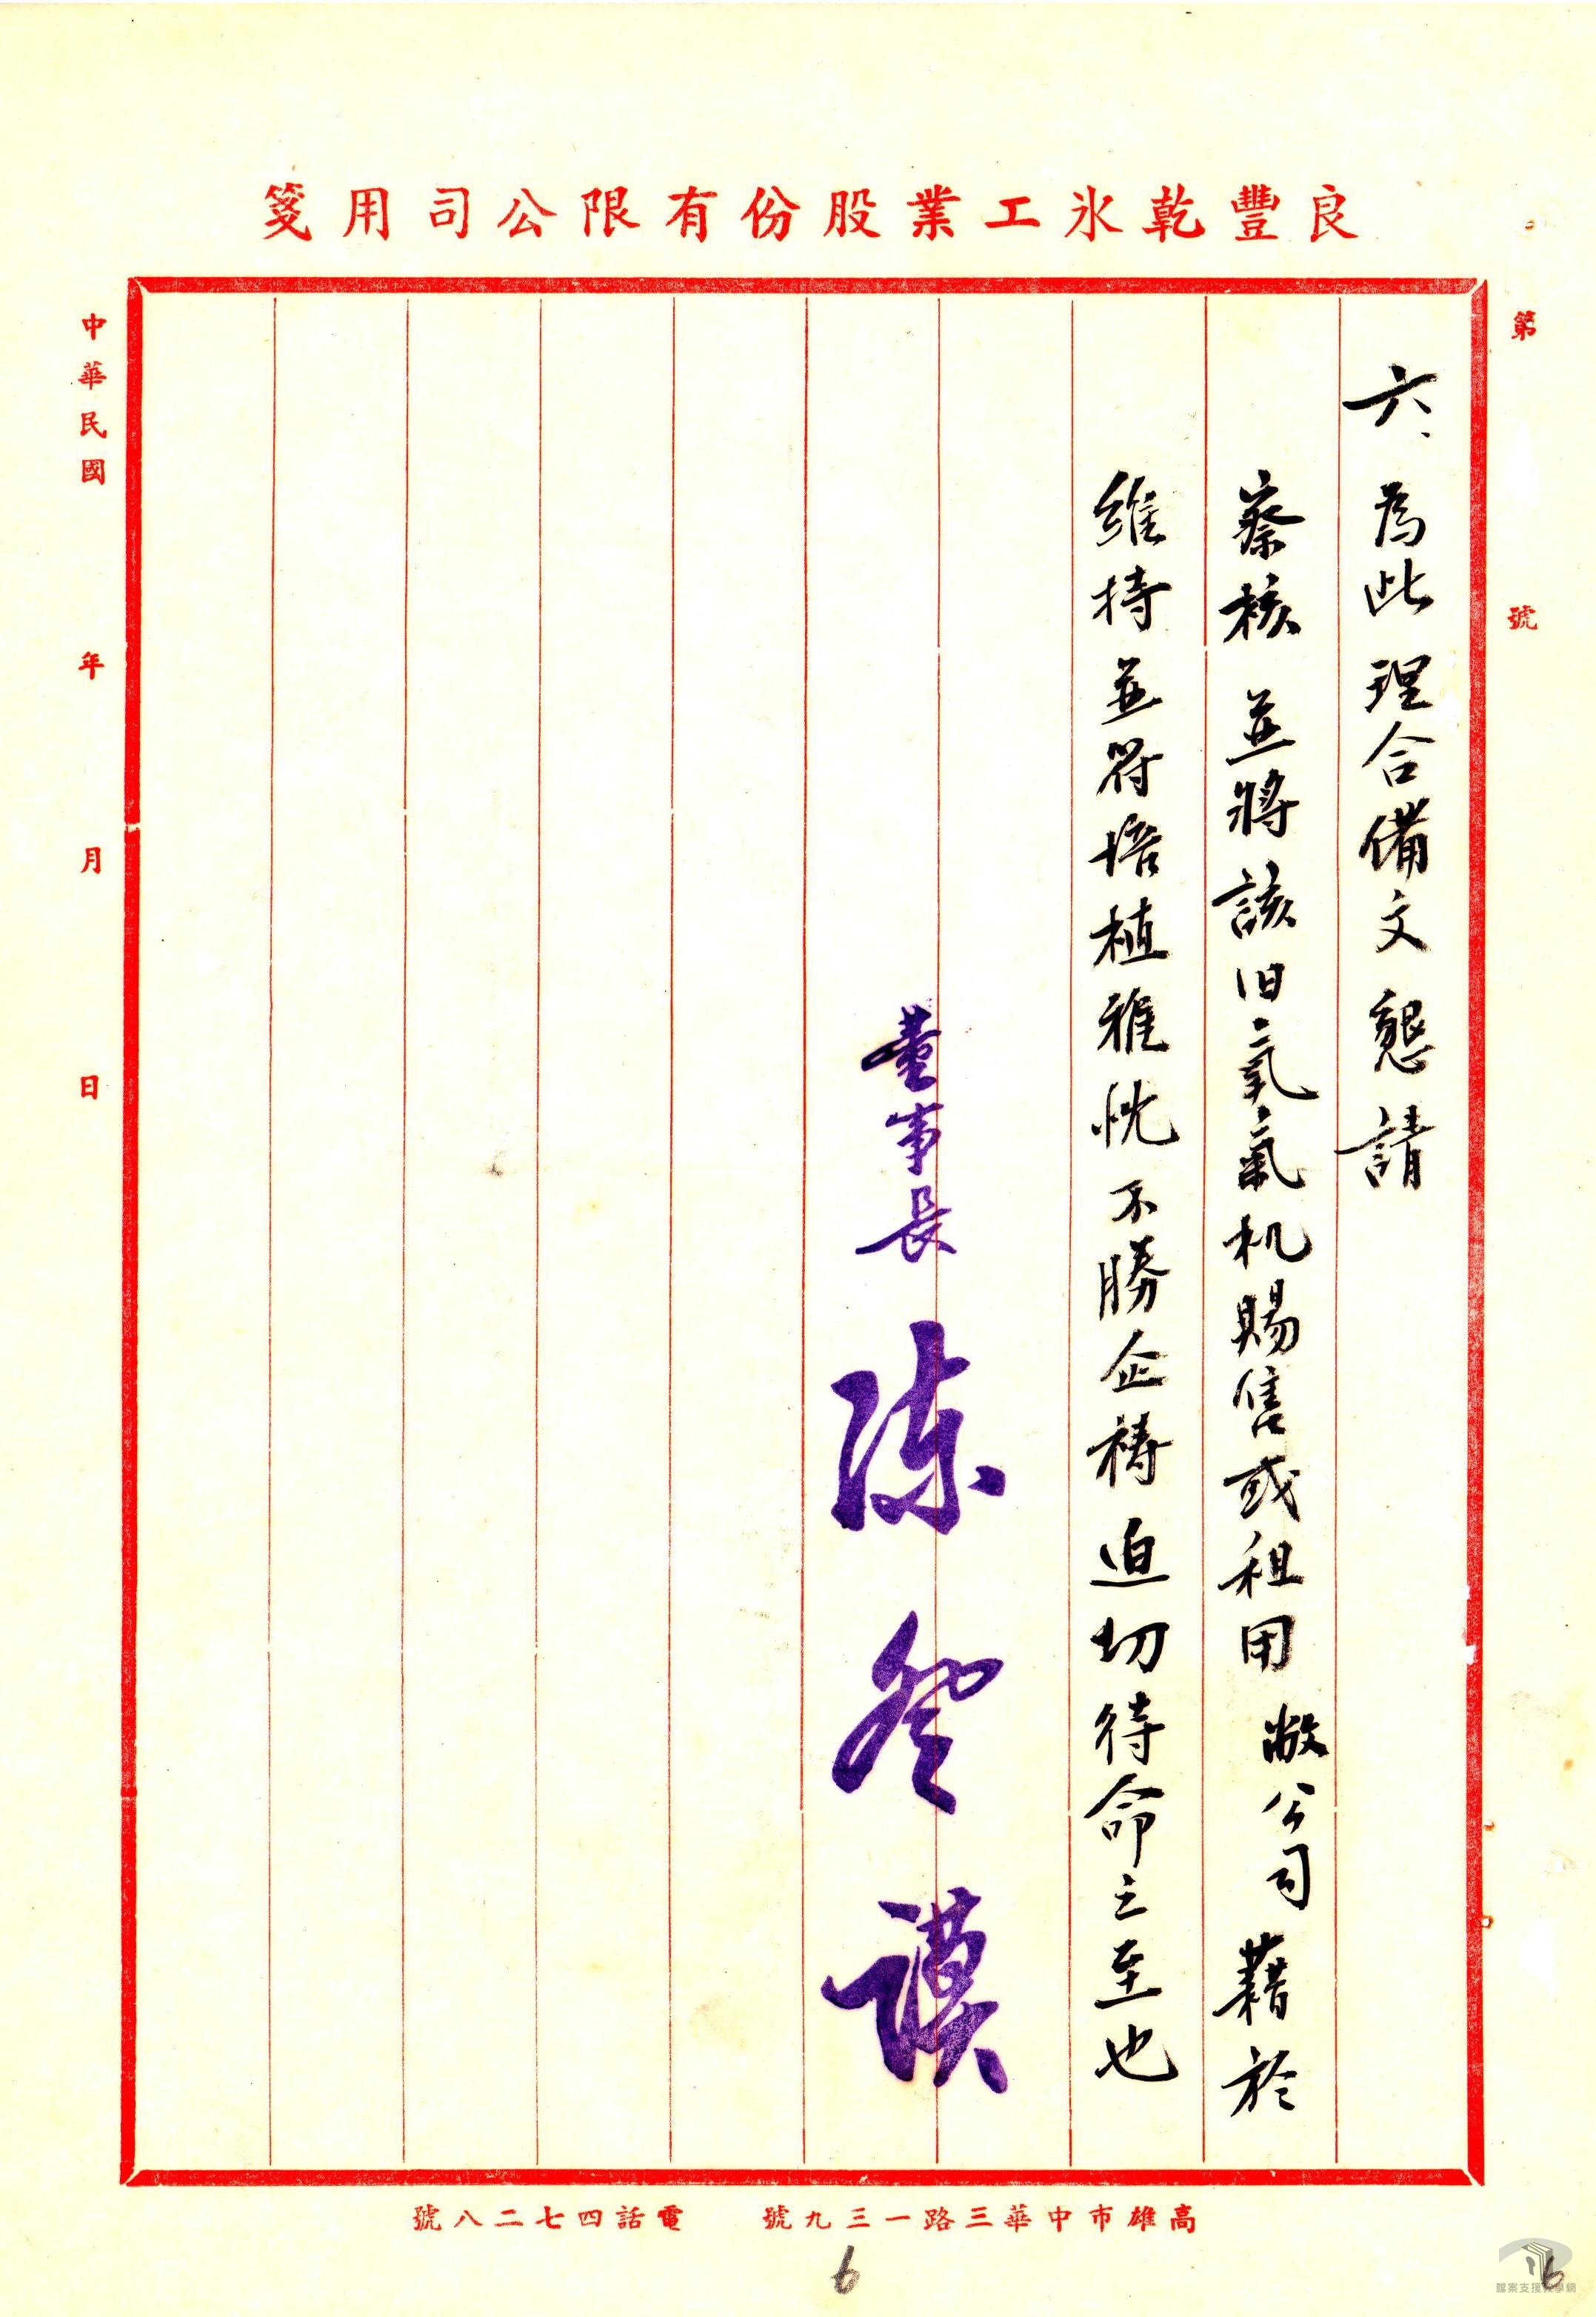 良豐乾氷工業股份有限公司用箋
第 號
六、為此理合備文懇請
察核並將該旧氧氣机賜售或租用敝公司藉於
維持並符培植雅忱不勝企禱迫切待命之至也
董事長 陳登謨
中華民國 年 月 日
高雄市中華三路一三九號 電話四七二八號
6
6
檔案支援教學網